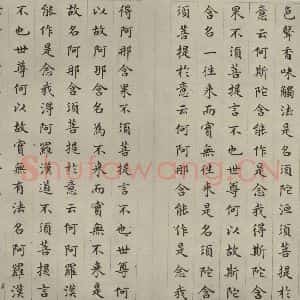 色聲香味觸法是名須陀洹須菩提於
意云何斯陀含能作是念我得斯陀含
果不須菩提言不也世尊何以故斯陀
含名一往來而實無往來是名斯陀含
須菩提於意云何阿那含能作是念我
得阿那含果不須菩提言不也世尊何
以故阿那含名為不來而實無不來是
故名阿那含須菩提於意云何阿羅漢
能作是念我得阿羅漢道不須菩提言
不也世尊何以故實無有法名阿羅漢
Shufawang.CN